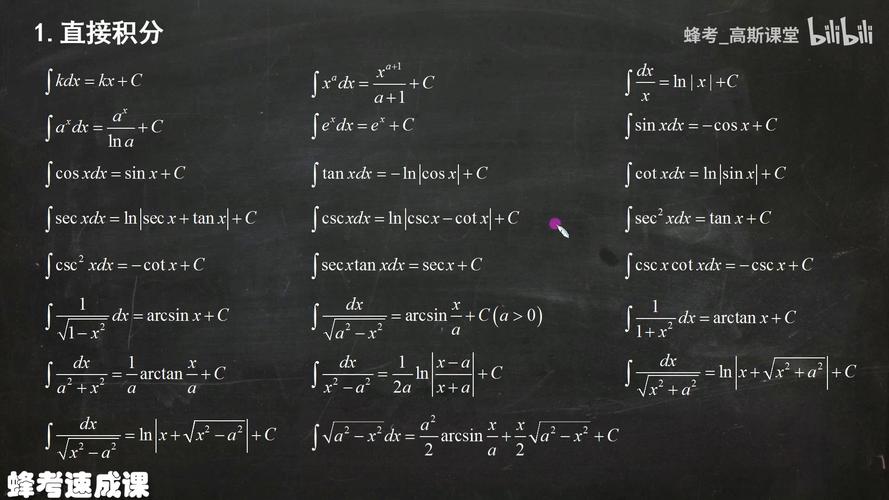 1. 直接积分
蜂考_高斯课堂 bilibili
∫kdx = kx + C
∫x^a dx = x^(a+1)/(a+1) + C
∫dx/x = ln|x| + C
∫a^x dx = a^x/ln a + C
∫e^x dx = e^x + C
∫sin xdx = −cos x + C
∫cos xdx = sin x + C
∫tan xdx = −ln|cos x| + C
∫cot xdx = ln|sin x| + C
∫sec xdx = ln|sec x + tan x| + C
∫csc xdx = ln|csc x − cot x| + C
∫sec² xdx = tan x + C
∫csc² xdx = −cot x + C
∫sec x tan xdx = sec x + C
∫csc x cot xdx = −csc x + C
∫1/√(1−x²) dx = arcsin x + C
∫dx/√(a²−x²) = arcsin x/a + C (a > 0)
∫1/(1+x²) dx = arctan x + C
∫dx/(a²+x²) = 1/a arctan x/a + C
∫dx/(x²−a²) = 1/2a ln|(x−a)/(x+a)| + C
∫dx/√(x²+a²) = ln|x+√(x²+a²)| + C
∫dx/√(x²−a²) = ln|x+√(x²−a²)| + C
∫√(a²−x²)dx = a²/2 arcsin x/a + x/2 √(a²−x²) + C
蜂考速成课